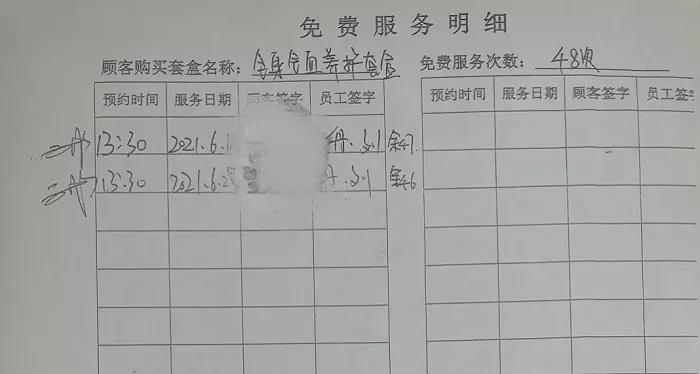 免费服务明细
顾客购买套盒名称： 面养护套盒 免费服务次数： 48次
预约时间 服务日期 顾客签字 员工签字 预约时间 服务日期 顾客签字 员工签
13:30 2021.6.1 丹. 余47.
13:30 2021.6.2 丹. 余46